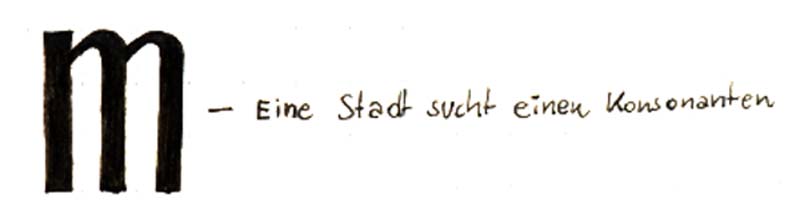 m – Eine Stadt sucht einen Konsonanten